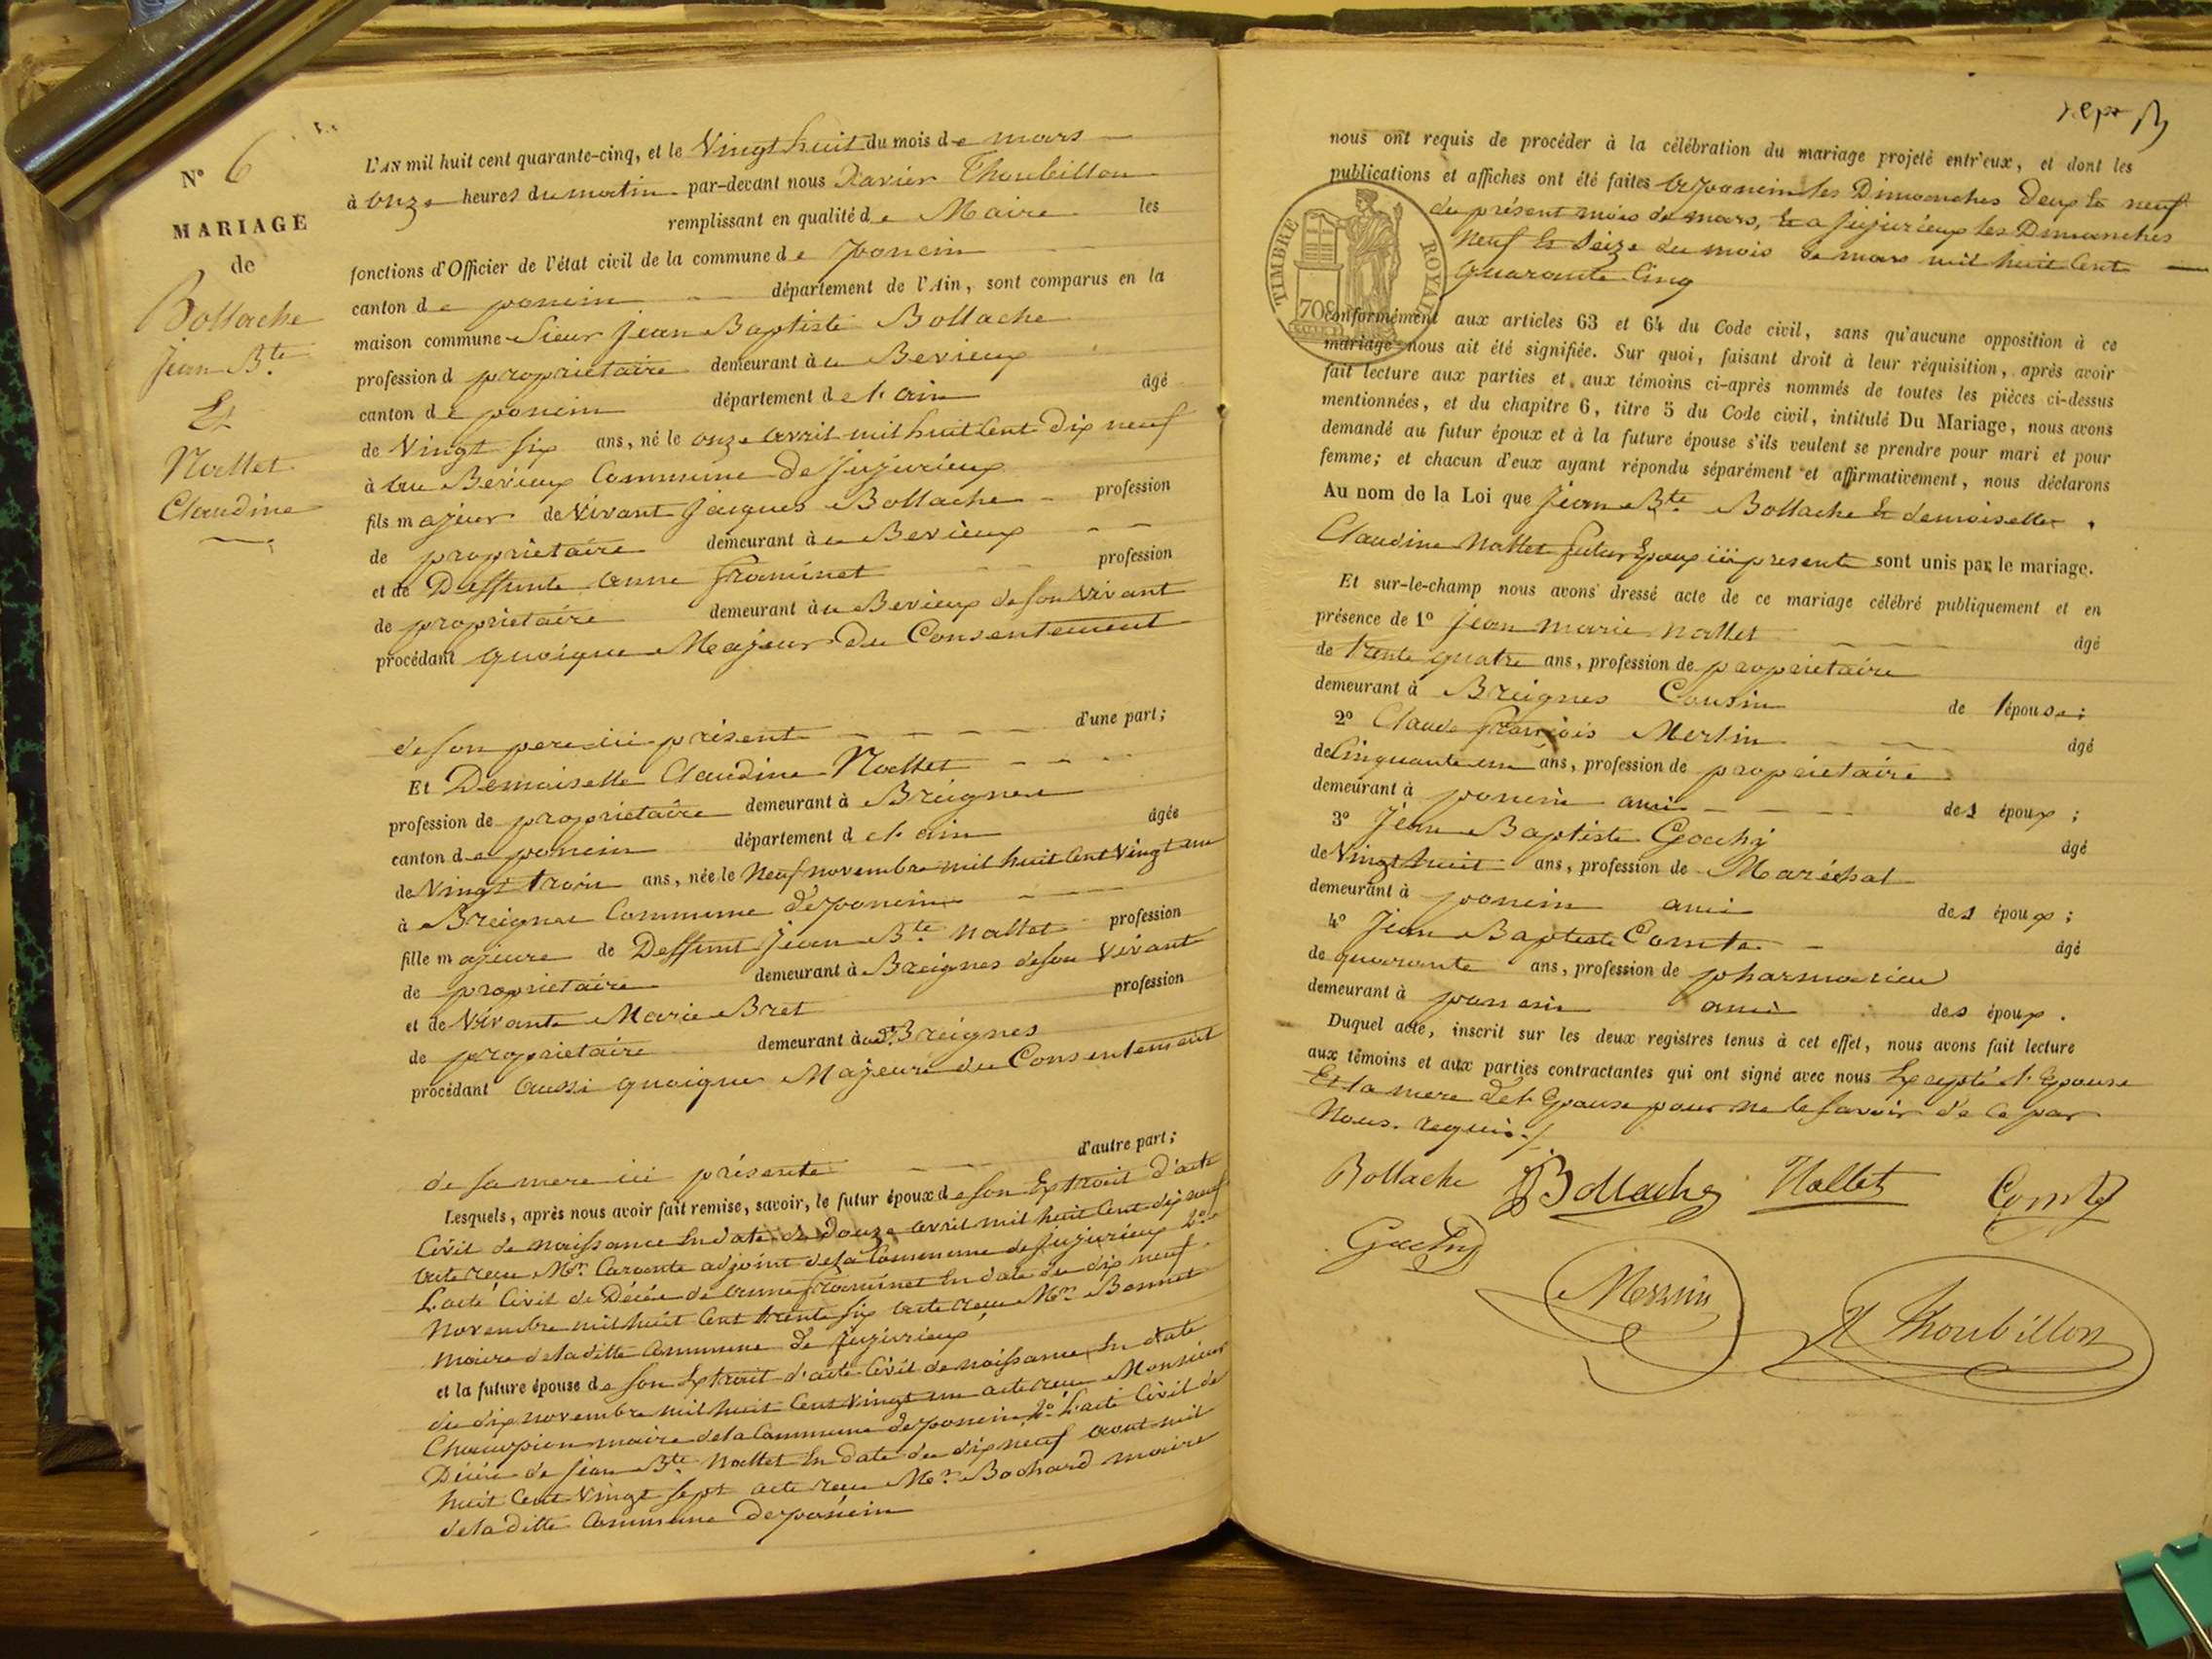 N° 6
MARIAGE
de
Bollache
Jean Bte
Et
Nallet
Claudine
L'AN mil huit cent quarante-cinq, et le Vingt huit du mois de mars
à onze heures du matin par-devant nous Xavier Thoubillon
remplissant en qualité de Maire les
fonctions d'Officier de l'état civil de la commune de poncin
canton de poncin département de l'Ain, sont comparus en la
maison commune Sieur Jean Baptiste Bollache
profession d propriétaire demeurant à au Bevieux
canton de poncin département de l'ain âgé
de Vingt six ans, né le onze avril mil huit Cent Dix neuf
à au Bévieux Commune de Jujurieux
fils majeur de Vivant Jacques Bollache profession
de propriétaire demeurant à au Bevieux
et de Deffunte anne Framinet profession
de propriétaire demeurant à au Bevieux de son vivant
procédant quoique Majeur Du Consentement
de son pere ici présent d'une part;
Et Demoiselle Claudine Nallet
profession de propriétaire demeurant à Breignes
canton de poncin département de l'ain âgée
de Vingt trois ans, née le Neuf novembre mil huit Cent Vingt un
à Breignes Commune de poncin
fille majeure de Deffunt Jean Bte Nallet profession
de propriétaire demeurant à Breignes de son Vivant
et de Vivante Marie Bret profession
de propriétaire demeurant à Breignes
procédant aussi quoique Majeure du Consentement
de sa mere ici présente d'autre part;
Lesquels, après nous avoir fait remise, savoir, le futur époux de son Extrait d'acte
Civil de naissance En date du Douze avril mil huit Cent dix neuf
acte reçu Mr. adjoint de la Commune de Jujurieux 2°
L'acte Civil de Décés de anne Framinet En date du dix neuf
Novembre mil huit Cent trente six acte reçu Mr. Bonnet
maire de la ditte Commune de Jujurieux
et la future épouse de son Extrait d'acte Civil de naissance En date
du dix novembre mil huit Cent Vingt un acte reçu Monsieur
Champion maire de la Commune de poncin 2° L'acte Civil de
Décés de Jean Bte Nallet En date du dix neuf aout mil
huit Cent Vingt sept acte reçu Mr. Bochard maire
de la ditte Commune de poncin
nous ont requis de procéder à la célébration du mariage projeté entr'eux, et dont les
publications et affiches ont été faites a poncin les Dimanches Deux Et neuf
du présent mois de mars, Et a Jujurieux les Dimanches
Neuf Et Seize du mois de mars mil huit Cent
Quarante Cinq
TIMBRE ROYAL
70c
conformément aux articles 63 et 64 du Code civil, sans qu'aucune opposition à ce
mariage nous ait été signifiée. Sur quoi, faisant droit à leur réquisition, après avoir
fait lecture aux parties et aux témoins ci-après nommés de toutes les pièces ci-dessus
mentionnées, et du chapitre 6, titre 5 du Code civil, intitulé Du Mariage, nous avons
demandé au futur époux et à la future épouse s'ils veulent se prendre pour mari et pour
femme; et chacun d'eux ayant répondu séparément et affirmativement, nous déclarons
Au nom de la Loi que Jean Bte Bollache Et demoiselle
Claudine Nallet futur Epoux ici présents sont unis par le mariage.
Et sur-le-champ nous avons dressé acte de ce mariage célébré publiquement et en
présence de 1° Jean Marie Nallet âgé
de trente quatre ans, profession de propriétaire
demeurant à Breignes Cousin de l'épouse;
2° Claude François Merlin âgé
de Cinquante un ans, profession de propriétaire
demeurant à poncin ami des époux;
3° Jean Baptiste Gachy âgé
de Vingt huit ans, profession de Maréchal
demeurant à poncin ami des époux;
4° Jean Baptiste Comte âgé
de quarante ans, profession de pharmacien
demeurant à poncin ami des époux.
Duquel acte, inscrit sur les deux registres tenus à cet effet, nous avons fait lecture
aux témoins et aux parties contractantes qui ont signé avec nous Excepté l'Epouse
Et la mere de l'Epouse pour ne le savoir de ce par
Nous requis
Bollache JBBollache Nallet Comte
Gachy
Merlin
X Thoubillon